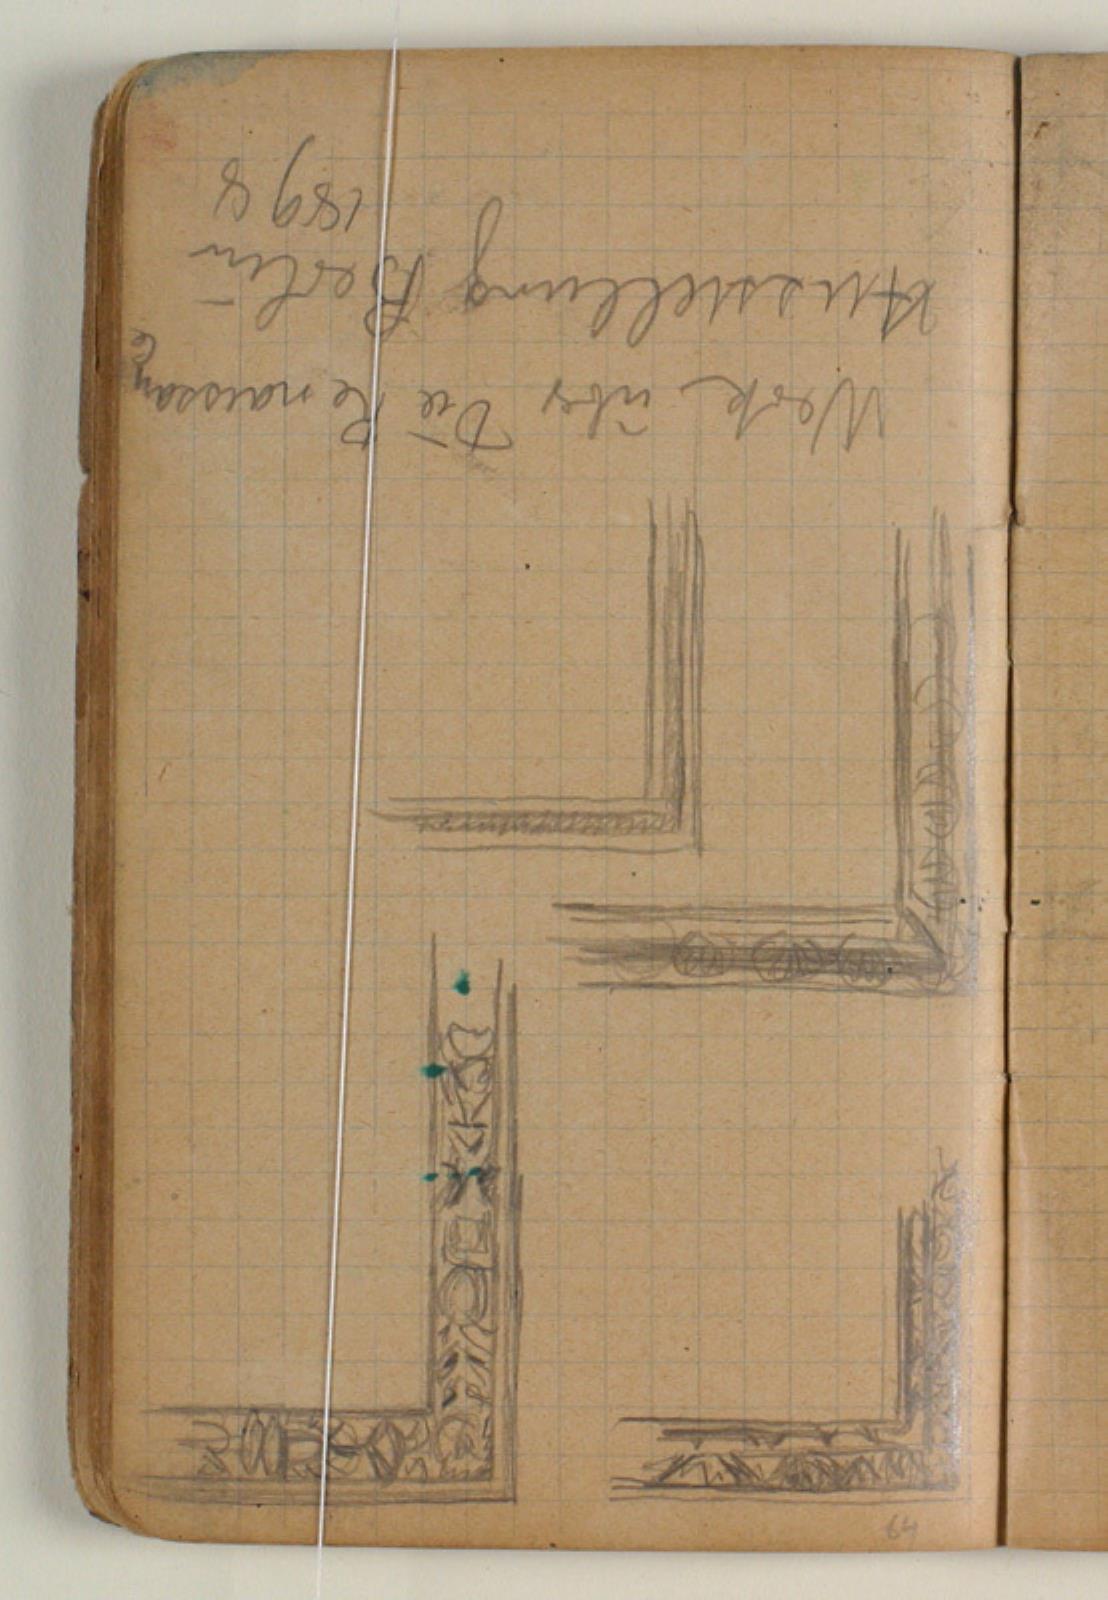 Werk über Die Renaissance
Ausstellung Berlin
1898
64